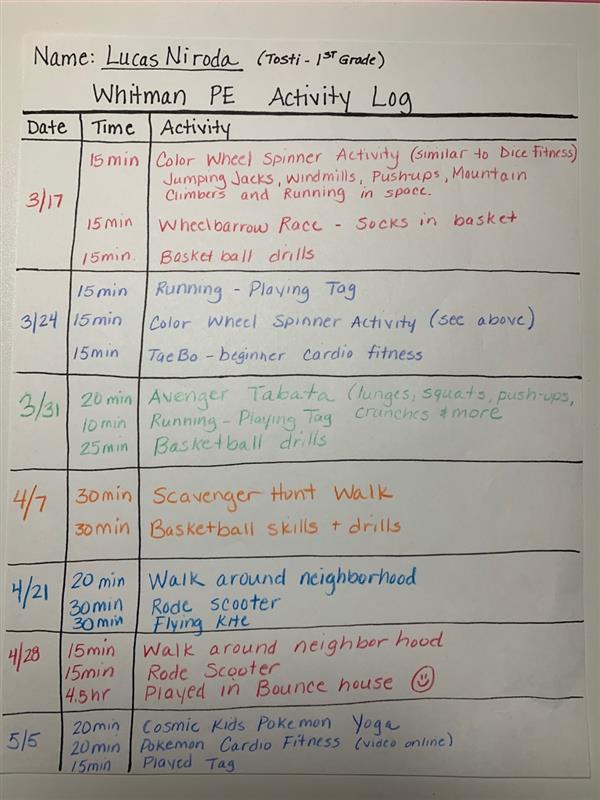 Name: Lucas Niroda (Tosti - 1ST Grade)
Whitman PE Activity Log
Date Time Activity
15 min Color Wheel Spinner Activity (similar to Dice Fitness)
Jumping Jacks, Windmills, Push-ups, Mountain
3/17 Climbers and Running in space.
15 min Wheelbarrow Race - Socks in basket
15 min. Basketball drills
15 min Running - Playing Tag
3/24 15 min Color Wheel Spinner Activity (see above)
15 min TaeBo - beginner cardio fitness
3/31 20 min Avenger Tabata (lunges, squats, push-ups,
crunches & more
10 min Running - Playing Tag
25 min Basketball drills
4/7 30 min Scavenger Hunt Walk
30 min Basketball skills + drills
4/21 20 min Walk around neighborhood
30 min Rode scooter
30 min Flying Kite
4/28 15 min Walk around neighborhood
15 min Rode Scooter
4.5 hr Played in Bounce house ☺
20 min Cosmic Kids Pokemon Yoga
5/5 20 min Pokemon Cardio Fitness (video online)
15 min Played Tag